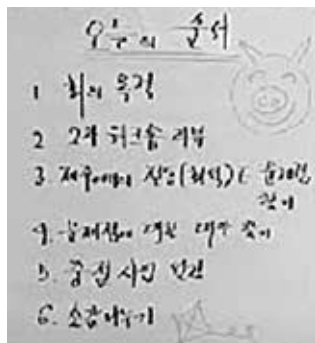 오늘의 순서
1 회의 목적
2 2차 워크숍 리뷰
3. 제주에서의 진행(회의)
찾기
4. 문제점에 대한 대안 찾기
5. 중점사업 빌딩
6. 소감나누기